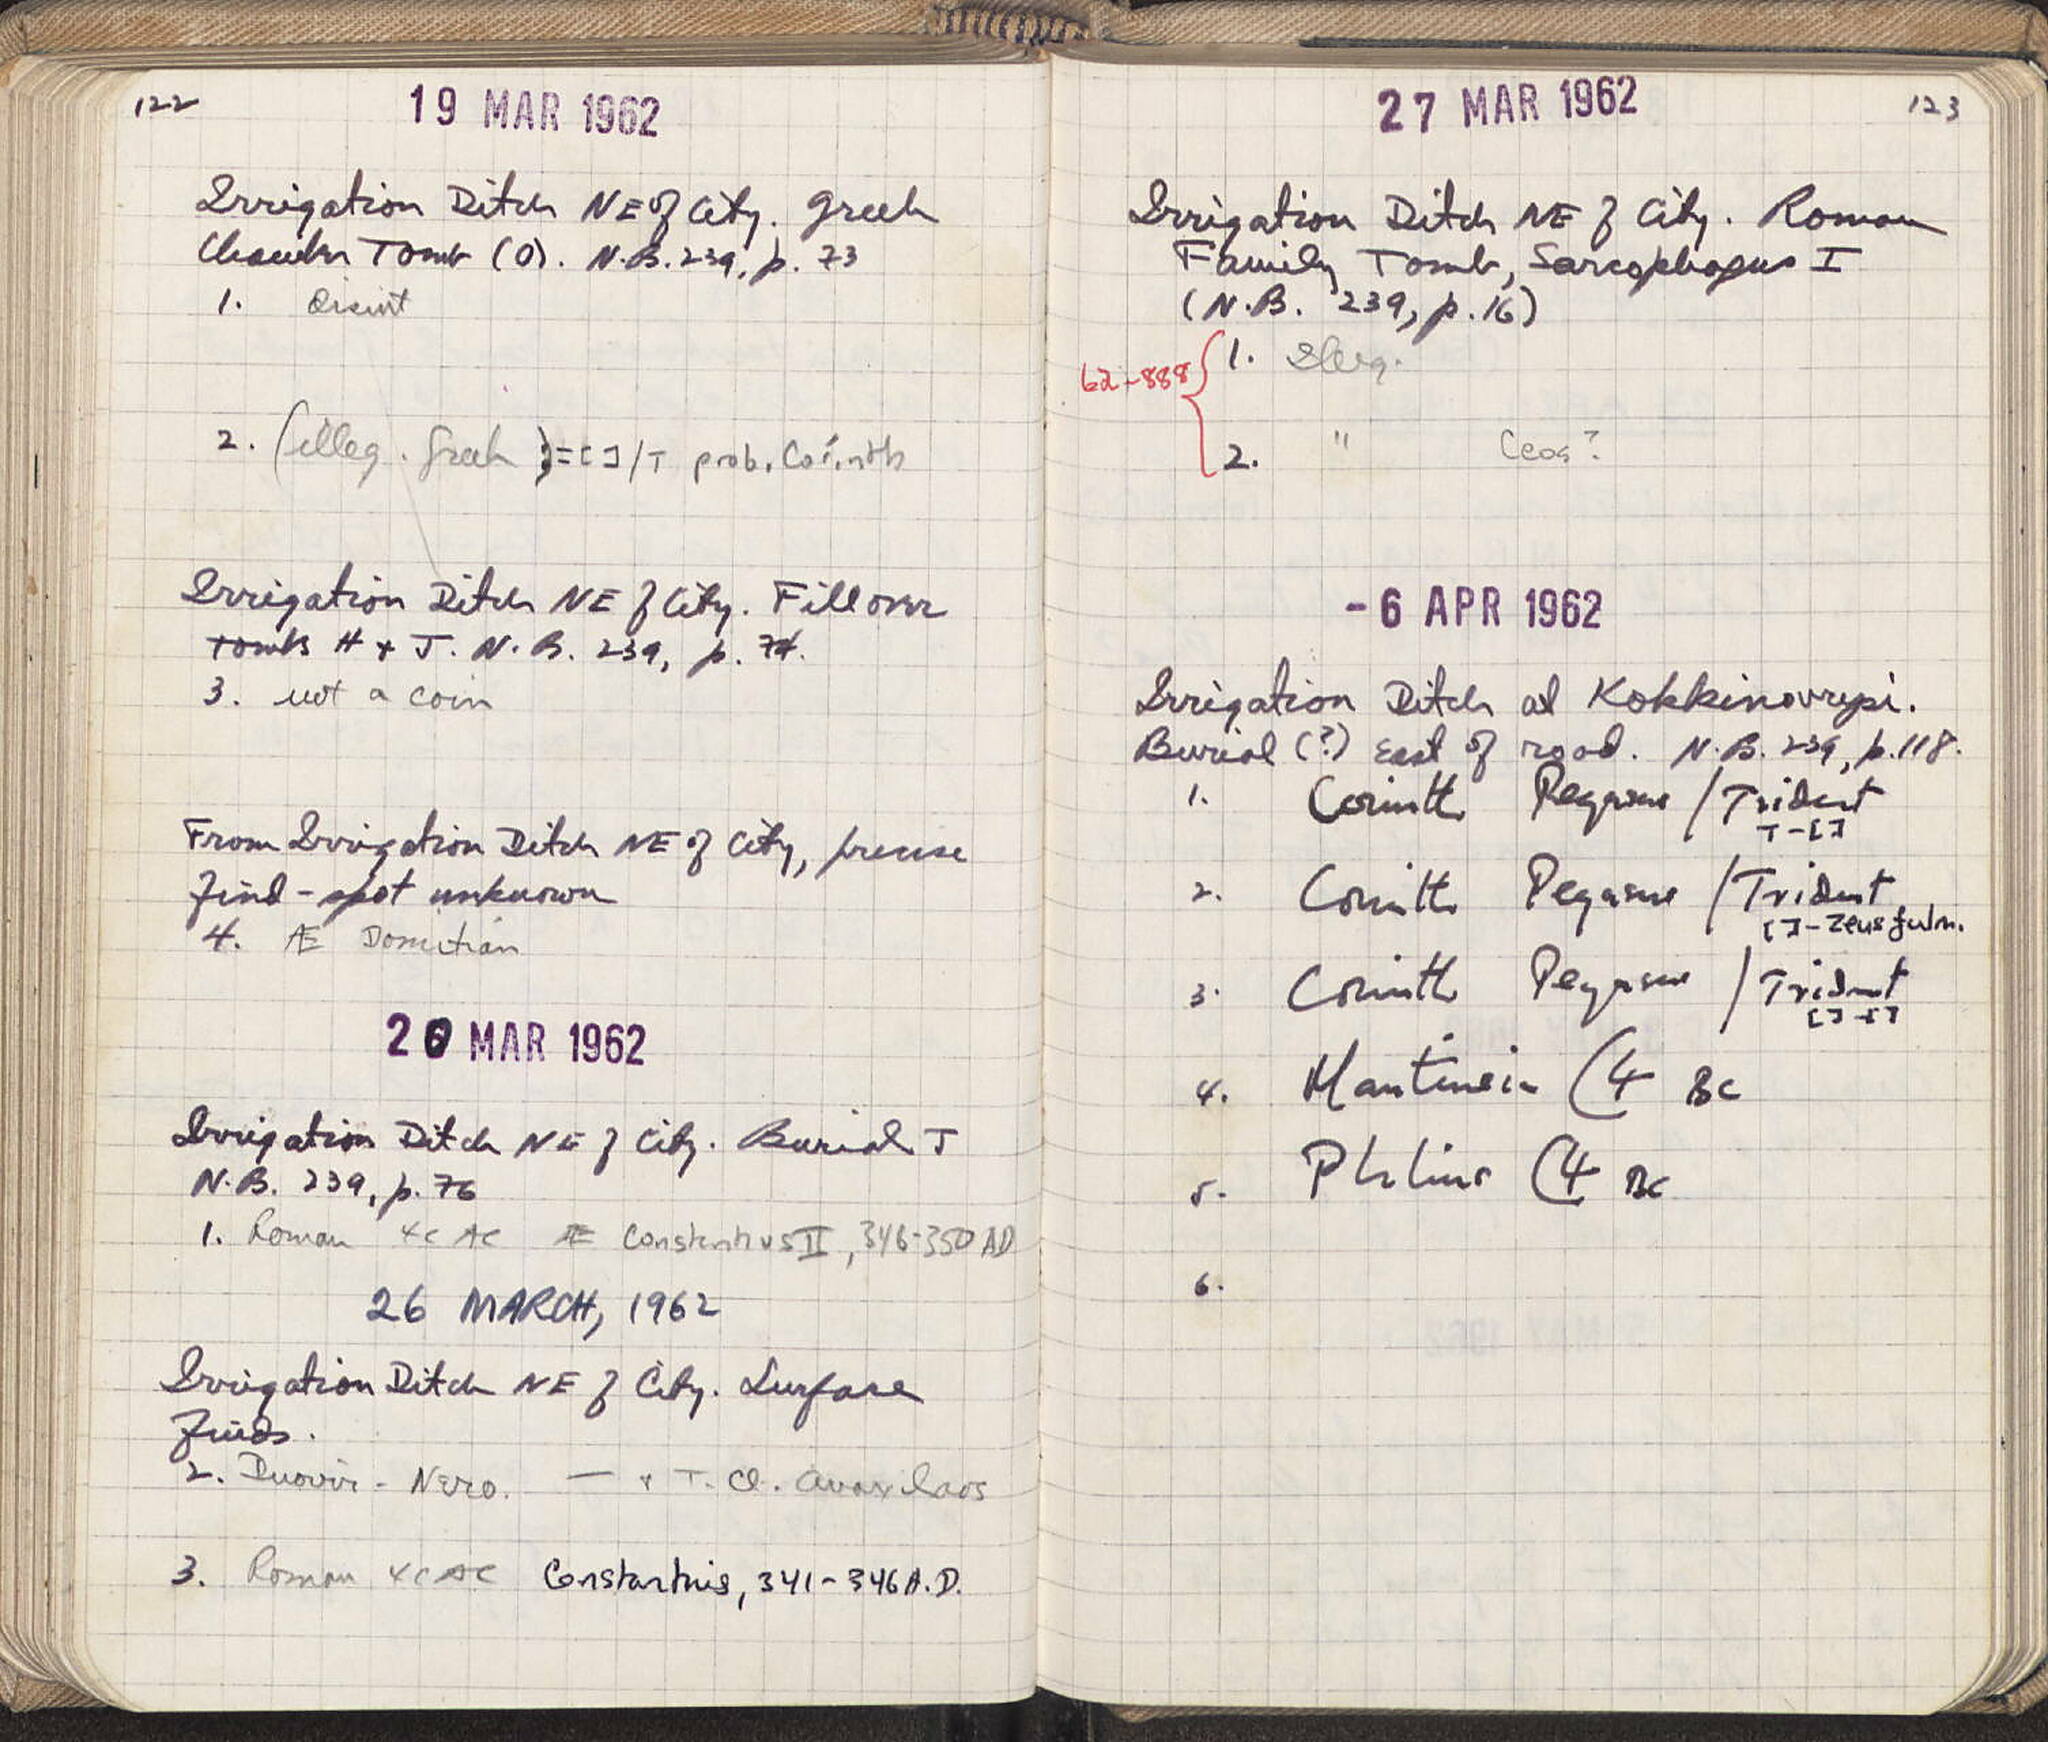 122
19 MAR 1962
Irrigation Ditch NE of City. Greek
Chamber Tomb (O). N.B. 239, p. 73
1. disint
2. (illeg. Greek) = [ ]/T prob. Corinth
Irrigation Ditch NE of City. Fill over
Tombs H + J. N.B. 239, p. 74.
3. not a coin
From Irrigation Ditch NE of City, precise
find-spot unknown
4. Æ Domitian
20 MAR 1962
Irrigation Ditch NE of City. Burial J
N.B. 239, p. 76
1. Roman 4c AC Æ Constantius II, 346-350 AD
26 MARCH, 1962
Irrigation Ditch NE of City. Surface
finds.
2. Duovir - Nero. — + T. Cl. Anaxilaos
3. Roman 4c AC Constantius, 341-346 A.D.
123
27 MAR 1962
Irrigation Ditch NE of City. Roman
Family Tomb, Sarcophagus I
(N.B. 239, p. 16)
62-888
1. Illeg.
2. " Ceos?
-6 APR 1962
Irrigation Ditch at Kokkinovrysi.
Burial (?) East of road. N.B. 239, p. 118.
1. Corinth Pegasus / Trident
T-[ ]
2. Corinth Pegasus / Trident
[ ]-Zeus fulm.
3. Corinth Pegasus / Trident
[ ]-[ ]
4. Mantineia C4 BC
5. Phlius C4 BC
6.